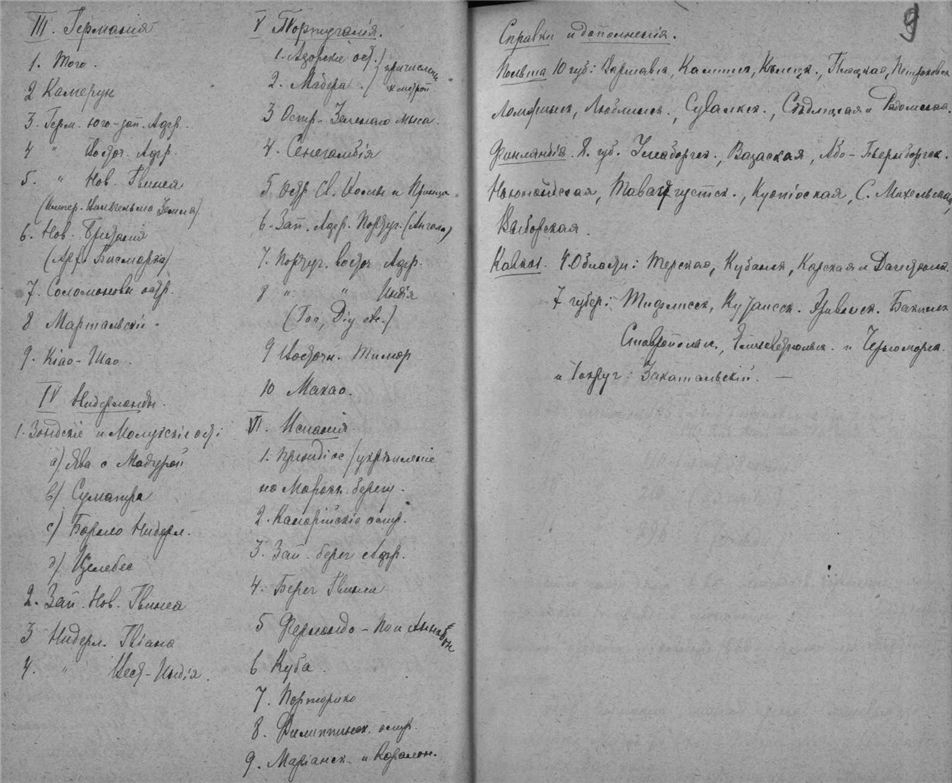 III. Германія
1. Того.
2 Камерун
3. Герм. юго-зап. Афр.
4 " Восточ. Афр.
5. " Нов. Гвинея
(Импер. Вильгельма Земля).
6. Нов. Британія
(Арх. Бисмарка)
7. Соломоновы остр.
8 Маршальскіе.
9. Kiao-Чао.
IV Нидерланды.
1. Зондскіе и Молукскіе ост:
а) Ява с Мадурой
в) Суматра
с) Борнео Нидерл.
д) Целебес
2. Зап. Нов. Гвинея
3 Нидерл. Гвіана
4. " Вест-Индія.
V Португалія.
1. Азорскіе ост.
2. Мадера.
3 Остр. Зеленаго мыса.
4. Сенегамбія
5 Остр Св. Фомы и Принца
6. Зап. Афр. Португ. (Ангола)
7. Португ. восточ Афр.
8 " " Индія
(Гоа, Diu etc.)
9 Восточн. Тимор
10 Макао.
VI. Испанія
1. Президіос / укрѣпленіе
на Марокк. берегу.
2. Канарійскіе остр.
3. Зап. берег Афр.
4. Берег Гвинеи
5 Фернандо-По и Аннобон
6 Куба.
7. Порторико
8. Филиппинск. остр.
9. Маріанск. и Каролин.
9
Справки и дополненія.
Польша 10 губ: Варшавск, Калишск, Кѣлецк., Плоцкая, Петроковск
Ломжинск, Люблинск., Сувалкск., Сѣдлецкая и Радомская.
Финляндія. 8. губ. Улеаборгск., Вазаская, Або-Бьернборгск.
Нюландская, Тавастгустск., Куопіоская, С. Михельская
Выборгская.
Кавказ. 4 Области: Терская, Кубанск, Карская и Дагестанск.
7 губер: Тифлисск, Кутаисск. Эриванск. Бакинск
Ставропольск., Елисаветпольск. и Черноморск.
и 1 округ: Закатальскій. —